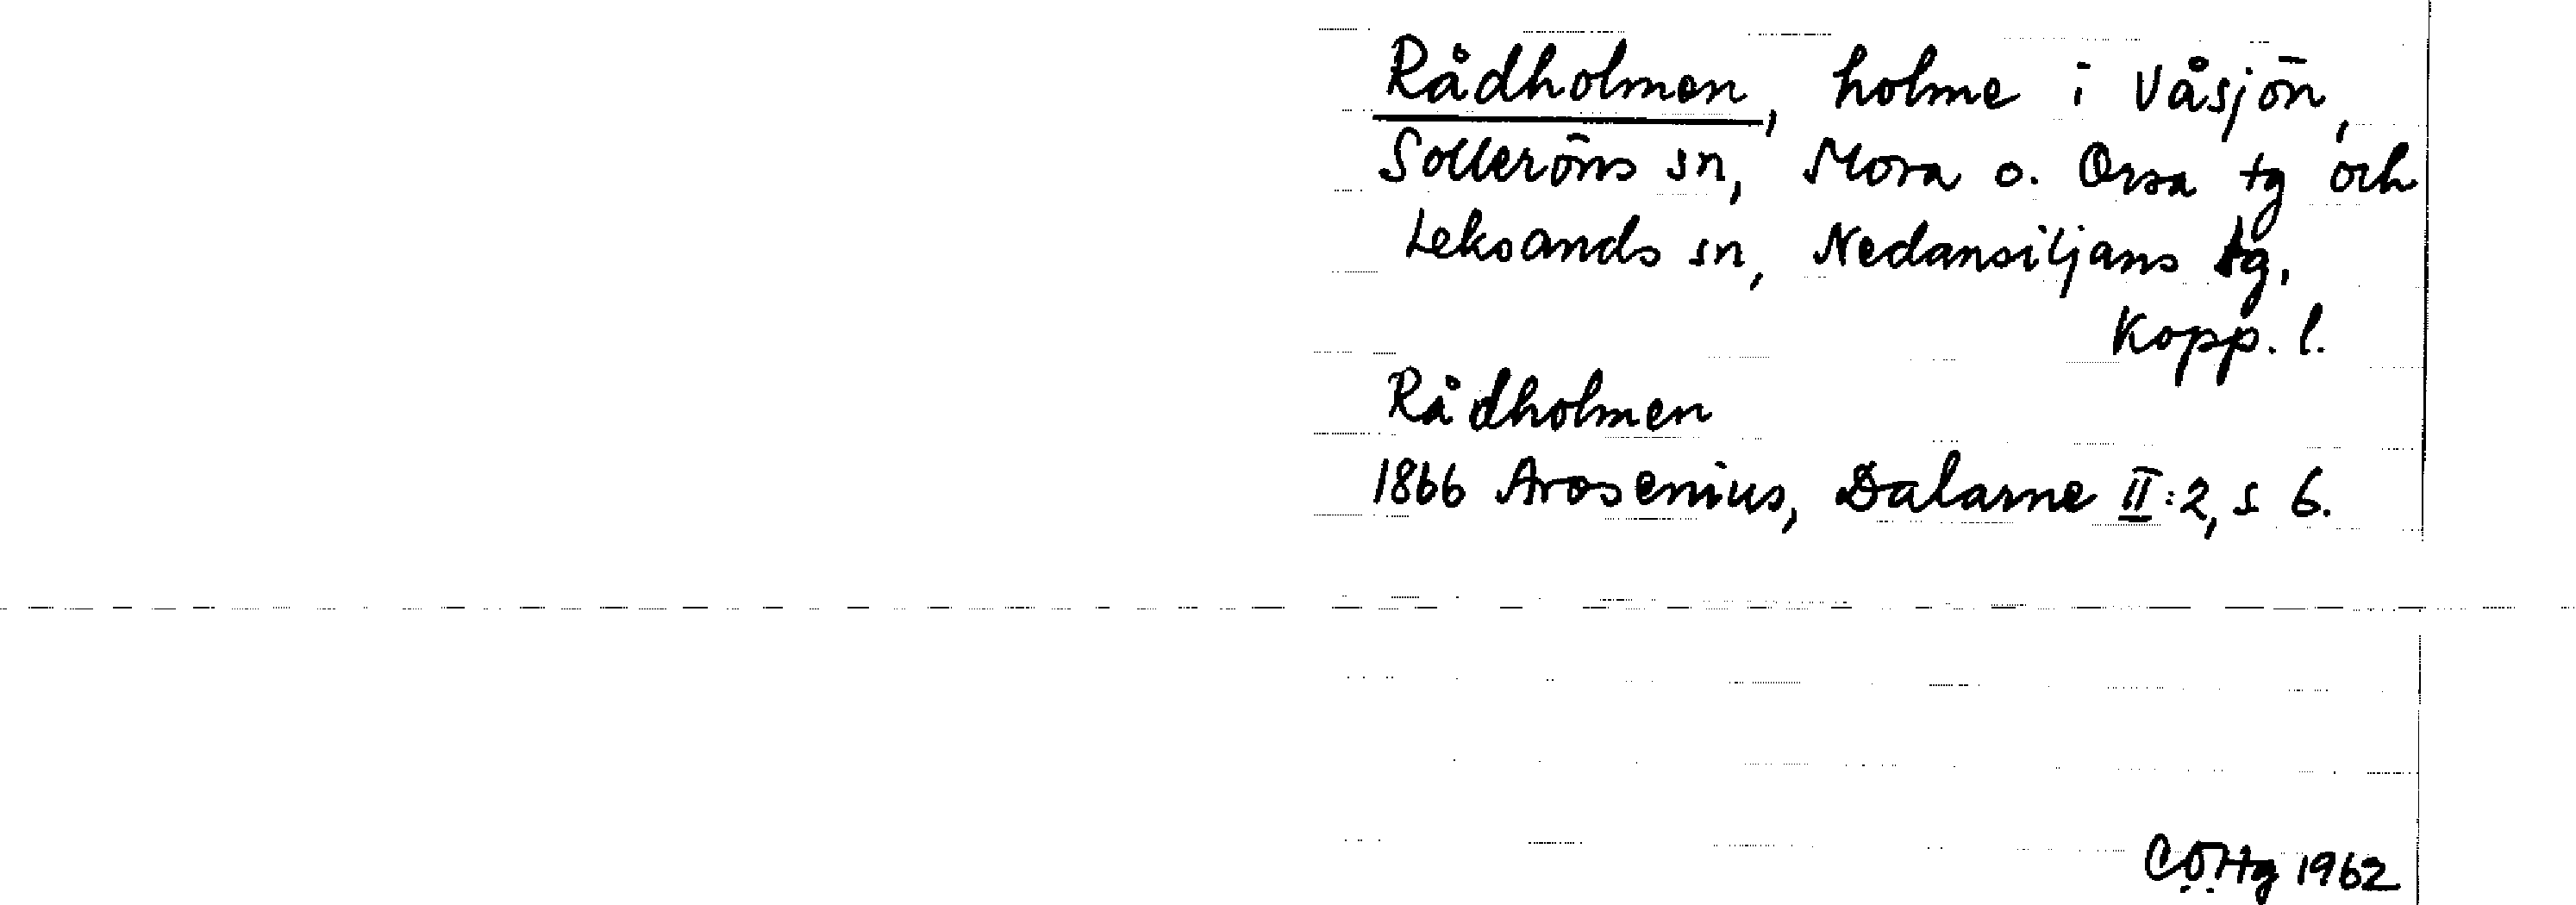 Rådholmen, holme i Våsjön,
Solleröns sn, Mora o. Orsa tg och
Leksands sn, Nedansiljans tg.
Kopp. l.
Rådholmen
1866 Arosenius, Dalarne II:2, s 6.
CÖHg 1962